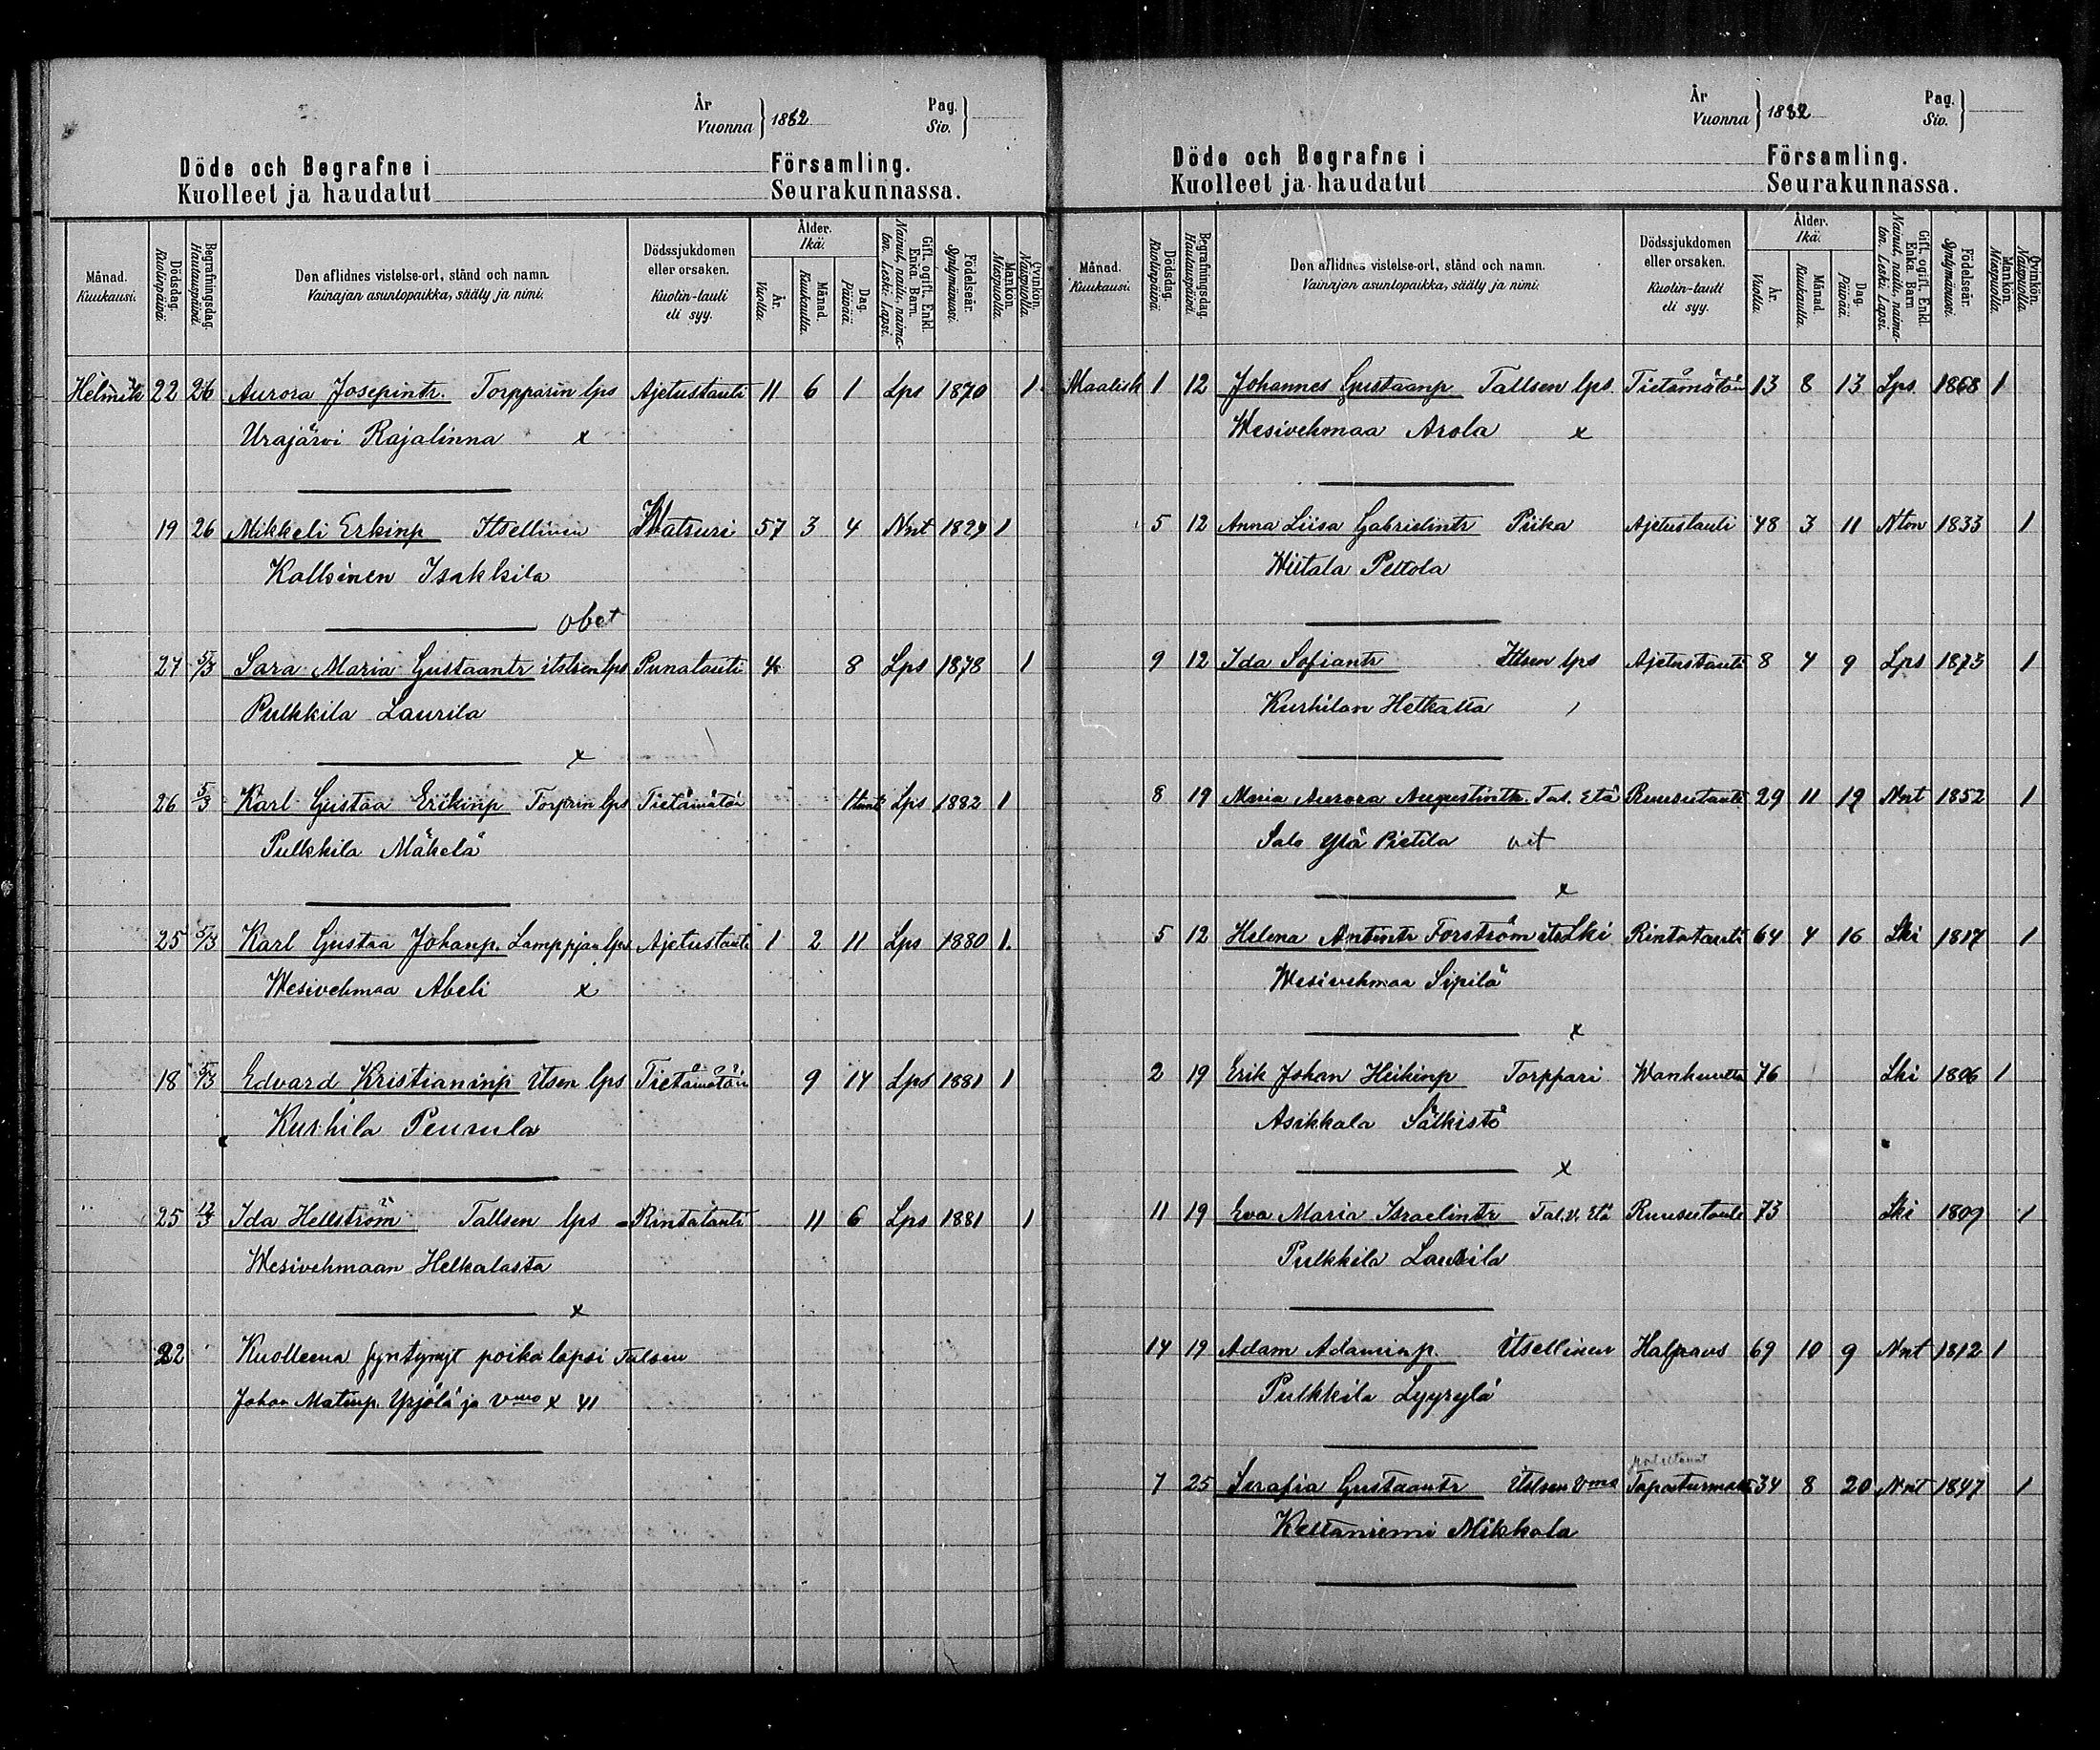 År
Vuonna } 1882
Pag.
Siv. }
Döde och Begrafne i Församling.
Kuolleet ja haudatut Seurakunnassa.
Månad. Kuukausi.
Dödsdag. Kuolinpäivä.
Begrafningsdag. Hautauspäivä.
Den aflidnes vistelse-ort, stånd och namn.
Vainajan asuntopaikka, sääty ja nimi.
Dödssjukdomen eller orsaken.
Kuolin-tauti eli syy.
Ålder. Ikä.
År. Vuotta.
Månad. Kuukautta.
Dag. Päivää.
Gift, ogift, Enkl. Enka. Barn.
Nainut, naitu, naimaton. Leski. Lapsi.
Födelseår. Syntymävuosi.
Mankön. Miespuolia.
Qvinkön. Naispuolia.
Helmik 22 26 Aurora Josepintr. Torpparin lps Ajetustauti 11 6 1 Lps 1870 1.
Urajärvi Rajalinna x
19 26 Mikkeli Erkinp Itsellinen Watsuri 57 3 4 Nnt 1824 1
Kalkinen Isakkila
obet
27 5/3 Sara Maria Gustaantr itstsen lps Punatauti 4 8 Lps 1878 1
Pulkkila Laurila
x
26 5/3 Karl Gustaa Erikinp Torprin lps Tietämätön 1 tunti Lps 1882 1
Pulkkila Mäkelä
25 5/3 Karl Gustaa Johanp. Lamppjan lps Ajetustauti 1 2 11 Lps 1880 1.
Wesivehmaa Abeli x
18 5/3 Edvard Kristianinp itsen lps Tietämätön 9 14 Lps 1881 1
Kurhila Peurula
25 12/3 Ida Hellström Tallsen lps Rintatauti 11 6 Lps 1881 1
Wesivehmaan Helkalasta
x
22 Kuolleena syntynyt poika lapsi Talsen
Johan Matinp. Yrjölä ja vmo x 41
År
Vuonna } 1882
Pag.
Siv. }
Döde och Begrafne i Församling.
Kuolleet ja haudatut Seurakunnassa.
Månad. Kuukausi.
Dödsdag. Kuolinpäivä.
Begrafningsdag. Hautauspäivä.
Den aflidnes vistelse-ort, stånd och namn.
Vainajan asuntopaikka, sääty ja nimi.
Dödssjukdomen eller orsaken.
Kuolin-tauti eli syy.
Ålder. Ikä.
År. Vuotta.
Månad. Kuukautta.
Dag. Päivää.
Gift, ogift, Enkl. Enka. Barn.
Nainut, naitu, naimaton. Leski. Lapsi.
Födelseår. Syntymävuosi.
Mankön. Miespuolia.
Qvinkön. Naispuolia.
Maalisk 1 12 Johannes Gustaanp Tallsen lps. Tietämätön 13 8 13 Lps. 1868 1
Wesivehmaa Arola x
5 12 Anna Liisa Gabrielintr Piika Ajetustauti 48 3 11 Nton 1833 1
Hiitala Peltola
9 12 Ida Sofiantr Itlsen lps Ajetustauti 8 4 9 Lps 1873 1
Kurhilan Hetkalta
8 19 Maria Aurora Augustintr. Tal. Etä Ruusutauti 29 11 19 Nnt 1852 1
Salo Ylä Pietila
x
5 12 Helena Antintr Forström its Lki Rintatauti 64 4 16 Lki 1817 1
Wesivehmaa Sipilä
x
2 19 Erik Johan Heikinp Torppari Wanhuutta 76 Lki 1806 1
Asikkala Sälkistö
x
11 19 Eva Maria Israelintr Tal.v. Etä Ruusutauti 73 Lki 1809 1
Pulkkila Laurila
14 19 Adam Adaminp Itsellinen Halpaus 69 10 9 Nnt 1812 1
Pulkkila Lyyrylä
7 25 Serafia Gustaantr Itslsen vmo Tapaturmasti 34 8 20 Nnt 1847 1
Keltaniemi Mikkola